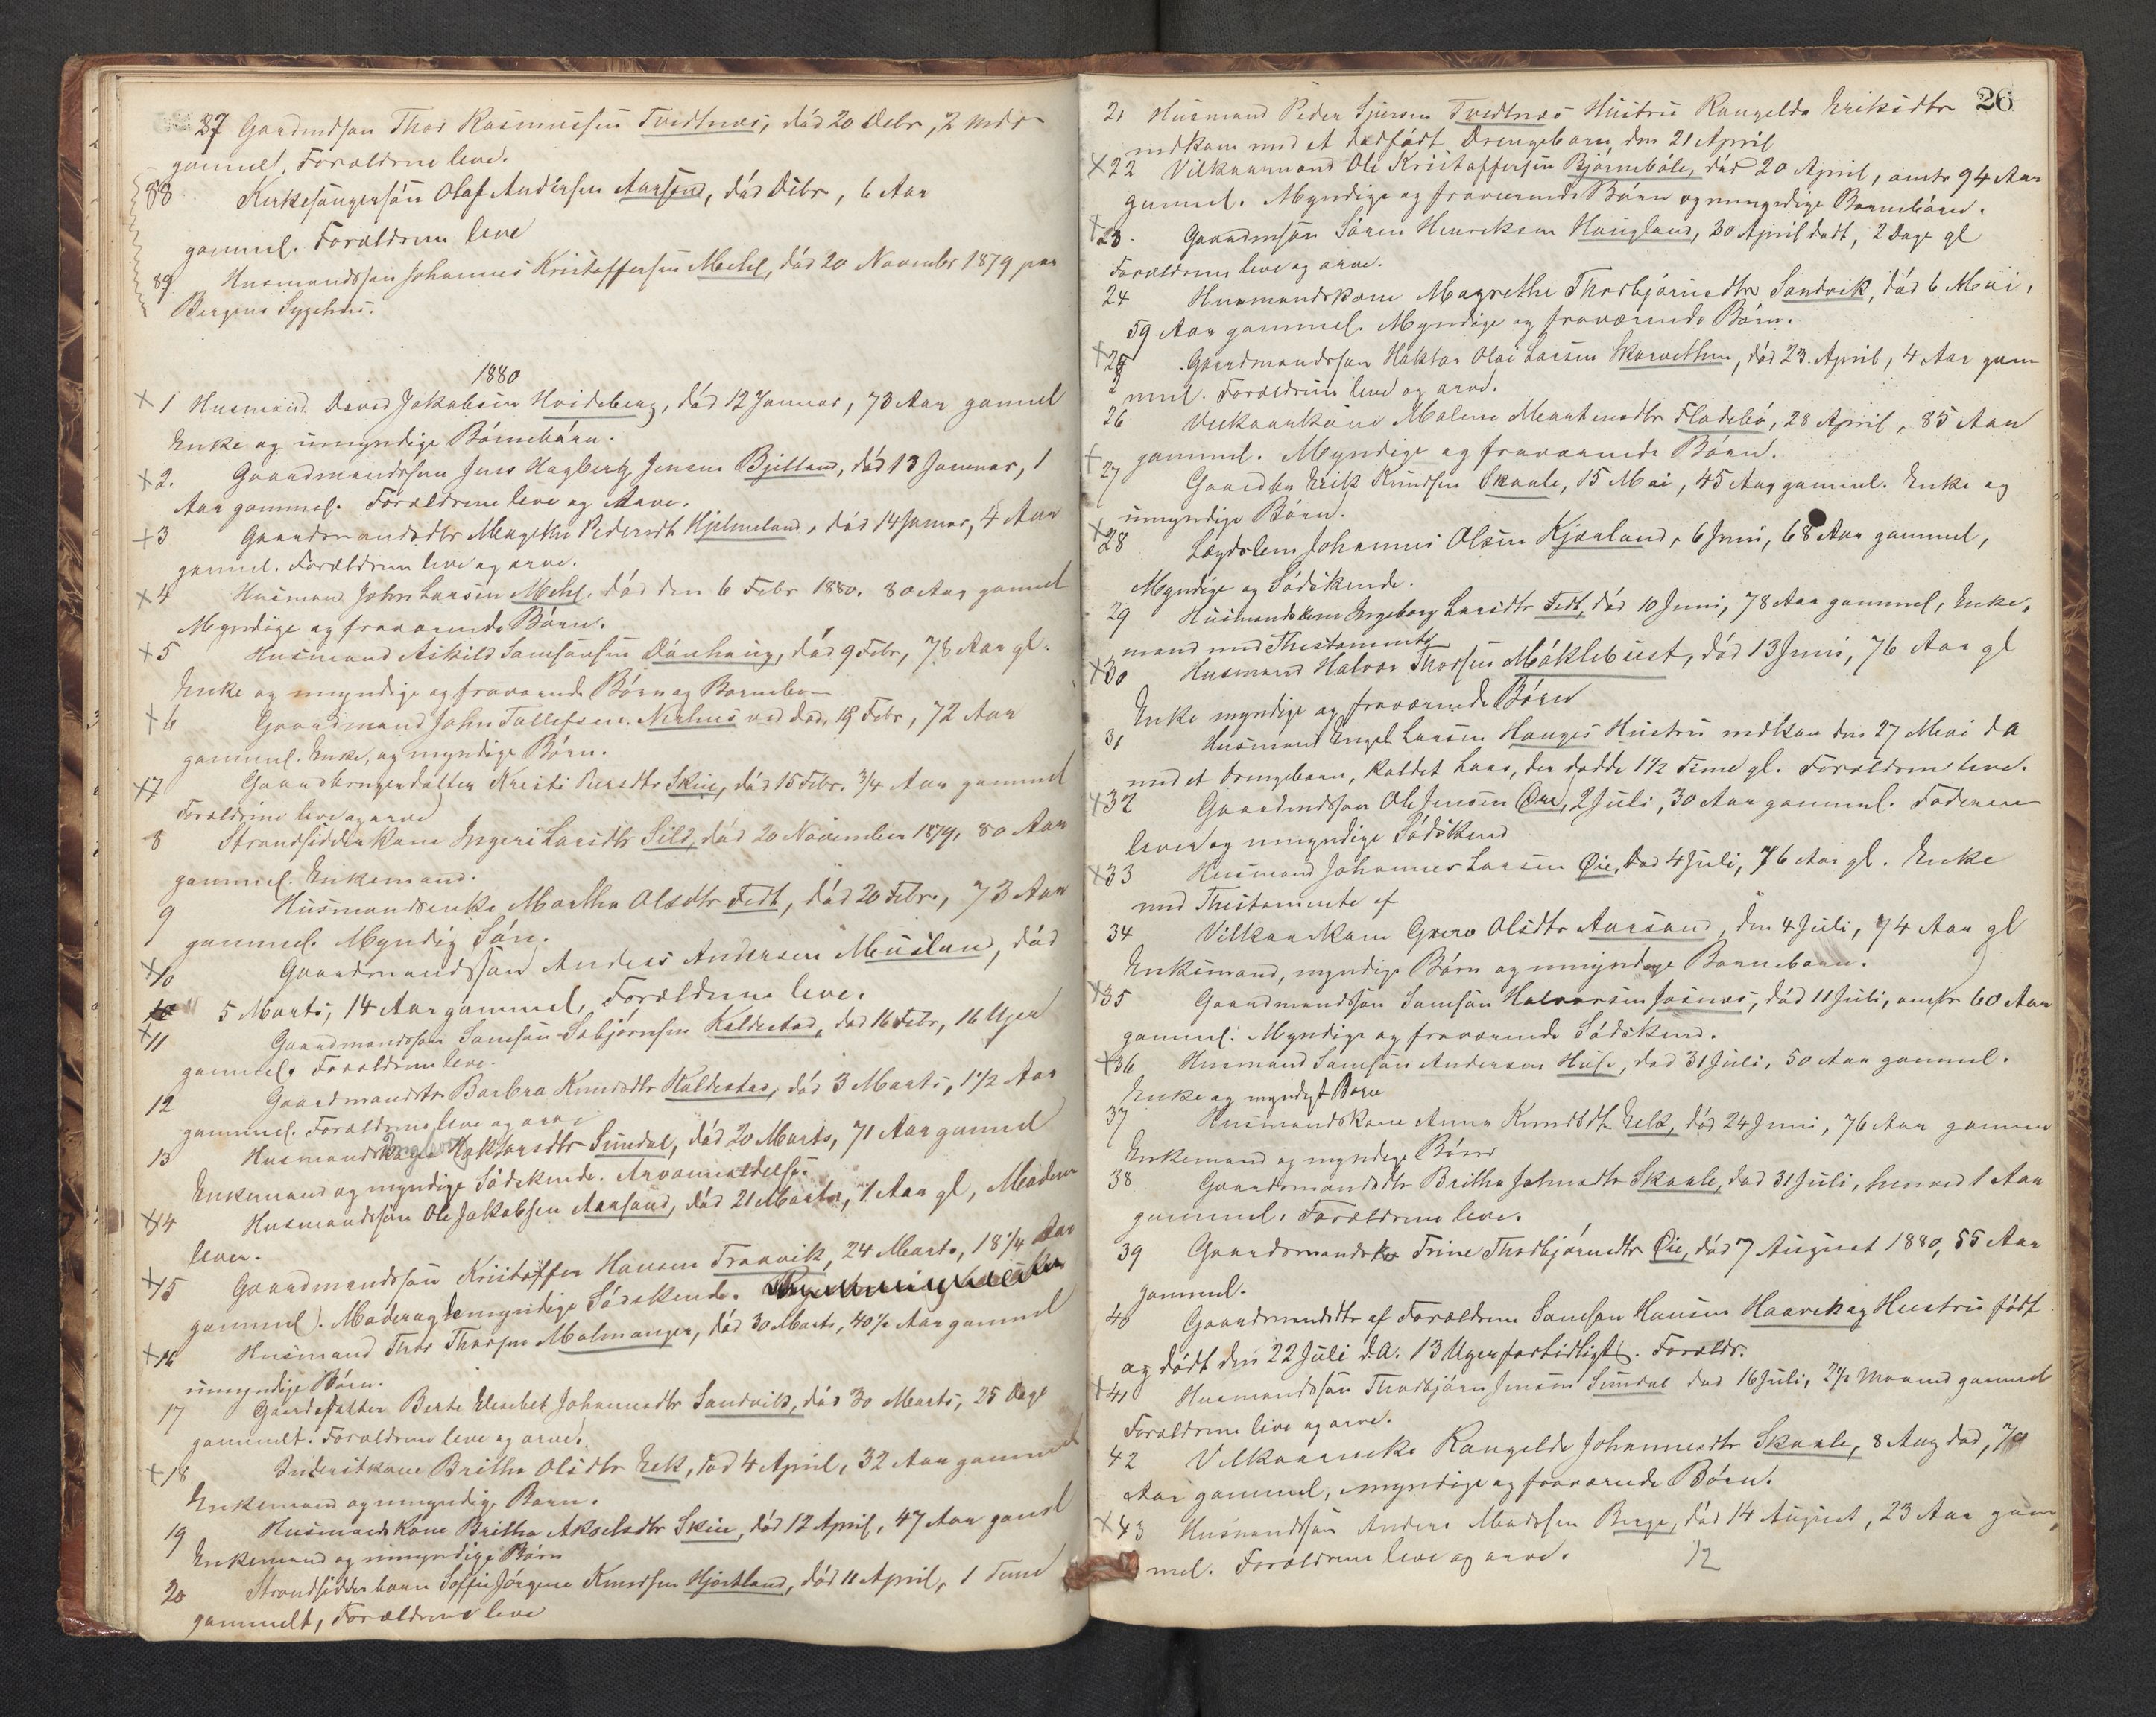 37 Gaardmdsøn Thor Rasmussen Tvedtnæs, død 20 Debr, 2 Mdr
gammel, Forældrene leve.
88 Kirkesangersøn Olaf Andersen Aarsand, død Debr, 6 Aar
gammel. Forældrene leve
89 Husmandssøn Johannes Kristoffersen Mehl, død 20 November 1879 paa
Bergens Sygehus.
1880
1 Husmand David Jakobsen Hvideberg, død 12 Januar, 73 Aar gammel
Enke og umyndige Børnebørn.
2. Gaardmandssøn Jens Hagbert Jensen Bjelland, død 13 Januar, 1
Aar gammel. Forældrene leve og Arve.
3 Gaardmandsdtr Margethe Pedersdt Hjelmeland, død 14 Januar, 4 Aar
gammel. Forældrene leve og arve.
4 Husmand John Larsen Mehl, død den 6 Febr 1880. 80 Aar gammel
Myndige og fraværende Børn.
5 Husmand Askild Samsonsen Dønhaug, død 9 Febr, 78 Aar gl.
Enke og myndige og fraværende Børn og Børnebørn
6 Gaardmand John Tollefsen Nerhus ved død, 19 Febr, 72 Aar
gammel. Enke, og myndige Børn.
7 Gaardbrugerdatter Kristi Persdtr Skeie, død 15 Febr. 3/4 Aar gammel
Forældrene leve og arve
8 Strandsidderkone Ingeri Larsdtr Sild, død 20 November 1879, 80 Aar
gammel. Enkemand.
9 Husmandsenke Martha Olsdtr Fedt, død 20 Febr., 73 Aar
gammel. Myndig Søn.
10 Gaardmandssøn Anders Andersen Muslan, død
5 Marts, 14 Aar gammel, Forældrene leve.
11 Gaardmandssøn Samson Sebjørnsen Kaldestad, død 16 Febr, 16 Uger
gammel. Forældrene leve.
12 Gaardmandsdtr Barbra Knudsdtr Kaldestad, død 3 Marts, 1 1/2 Aar
gammel. Forældrene leve og arve
13 Husmandskone Ingeborg Haktorsdtr Sundal, død 20 Marts, 71 Aar gammel
Enkemand og myndige Sødskende. Arveanmeldelse.
14 Husmandssøn Ole Jakobsen Aarsand, død 21 Marts, 1 Aar gl, Moderen
lever.
15 Gaardmandssøn Kristoffer Hansen Traavik, 24 Marts, 18 1/4 Aar
gammel. Moder og umyndige Sødskende.
16 Husmand Thor Thorsen Malmanger, død 30 Marts, 40 1/2 Aar gammel
umyndige Børn.
17 Gaardsdatter Berte Elesebet Johannesdtr Sandvik, død 30 Marts, 25 Dage
gammelt. Forældrene leve og arve.
18 Inderstkone Britha Olsdtr Eek, død 4 April, 32 Aar gammel
Enkemand og umyndig Barn.
19 Husmandskone Britha Akselsdtr Skeie, død 12 April, 47 Aar gaml
Enkemand og umyndige Børn
20 Strandsidderbarn Soffie Jørgine Knudsen Hjortland, død 11 April, 1 Time
gammelt, Forældrene leve
26
21 Husmand Peder Sjursen Tvedtnæs Hustru Rangelda Eriksdtr
nedkom med et dødfødt Drengebarn, den 21 April
22 Vilkaarmand Ole Kristoffersen Bjørnebøle, død 20 April, omtr 94 Aar
gammel. Myndige og fraværende Børn og myndige Børnebørn.
23. Gaardmsøn Søren Henriksen Haugland, 30 April død, 2 Dage gl
Forældrene leve og arve.
24 Husmandskone Magrethe Thorbjørnsdtr Sandvik, død 6 Mai,
59 Aar gammel. Myndige og fraværende Børn.
25 Gaardmandssøn Haktor Olai Larsen Skarvethun, død 23. April, 4 Aar gam
mel. Forældrene leve og arve.
26 Vilkaarkone Malene Mortensdtr Fladebø, 28 April, 85 Aar
gammel. Myndige og fraværende Børn.
27 Gaardbr Erik Knudsen Skaale, 15 Mai, 45 Aar gammel. Enke og
umyndige Børn.
28 Lægdslem Johannes Olsen Kjærland, 6 Juni, 68 Aar gammel,
Myndige og Sødskende.
29 Husmandskone Ingeborg Larsdtr Fedt, død 10 Juni, 78 Aar gammel, Enke,
mand med Thestamente
30 Husmand Halvor Thorsen Møklebust, død 13 Juni, 76 Aar gl
Enke myndige og fraværende Børn
31 Husmand Engel Larsen Hauges Hustru nedkom den 27 Mai d A
med et Drengebarn, kaldet Lars, der døde 1 1/2 Time gl. Forældrene leve.
32 Gaardmdssøn Ole Jensen Øre, 2 Juli, 30 Aar gammel. Faderen
lever og umyndige Sødskend
33 Husmand Johannes Larsen Øie, død 4 Juli, 76 Aar gl. Enke
med Thestamente af
34 Vilkaarkone Guro Olsdtr Aarsand, den 4 Juli, 74 Aar gl
Enkemand, myndige Børn og umyndige Børnebørn.
35 Gaardmandssøn Samson Halvorsen Josnæs, død 11 Juli, omtr 60 Aar
gammel. Myndige og fraværende Sødskend.
36 Husmand Samson Anderson Huse, død 31 Juli, 50 Aar gammel.
Enke og myndigt Barn
37 Husmandskone Anna Knudsdt Eek, død 24 Juni, 76 Aar gammel
Enkemand og myndige Børn
38 Gaardsmandsdtr Britha Johnsdtr Skaale, død 31 Juli, henved 1 Aar
gammel, Forældrene leve.
39 Gaardsmandsk Trine Thorbjørnsdtr Øie, død 7 August 1880, 55 Aar
gammel.
40 Gaardsmandsdtr af Forældrene Samson Hansen Haavik og Hustru født
og dødt den 22 Juli d.A. 13 Uger fortidligt. Forældr.
41 Husmandssøn Thorbjørn Jensen Sundal død 16 Juli, 2 1/2 Maaned gammel
Forældrene leve og arve.
42 Vilkaarenke Rangelde Johannesdtr Skaale, 8 Aug død, 70
Aar gammel, myndige og fraværende Børn.
43 Husmandssøn Anders Madssen Berge, død 14 August, 23 Aar gam
mel. Forældrene leve og arve.
12